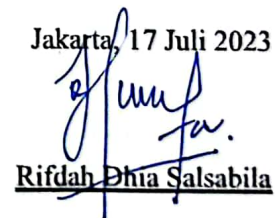 Jakarta, 17 Juli 2023
Rifdah Dhia Salsabila